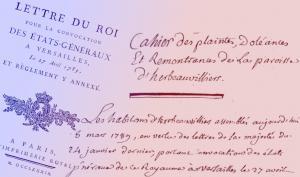 LETTRE DU ROI
POUR LA CONVOCATION
DES ETATS-GENERAUX
A VERSAILLES,
Le 27 Avril 1789.
ET RÈGLEMENT Y ANNEXÉ.
A PARIS,
IMPRIMERIE ROYALE
M. DCCLXXXIX
Cahier des plaintes, Doléances
Et Remontrances de la paroisse
d'herbeauvilliers.
Les habitans d'herbeauvilliers assemblés aujourd'hui
8 mars 1789, en vertu des lettres de sa majesté du
24 janvier dernier portant convocation des états
généraux de ce Royaume à Versailles le 27 avril